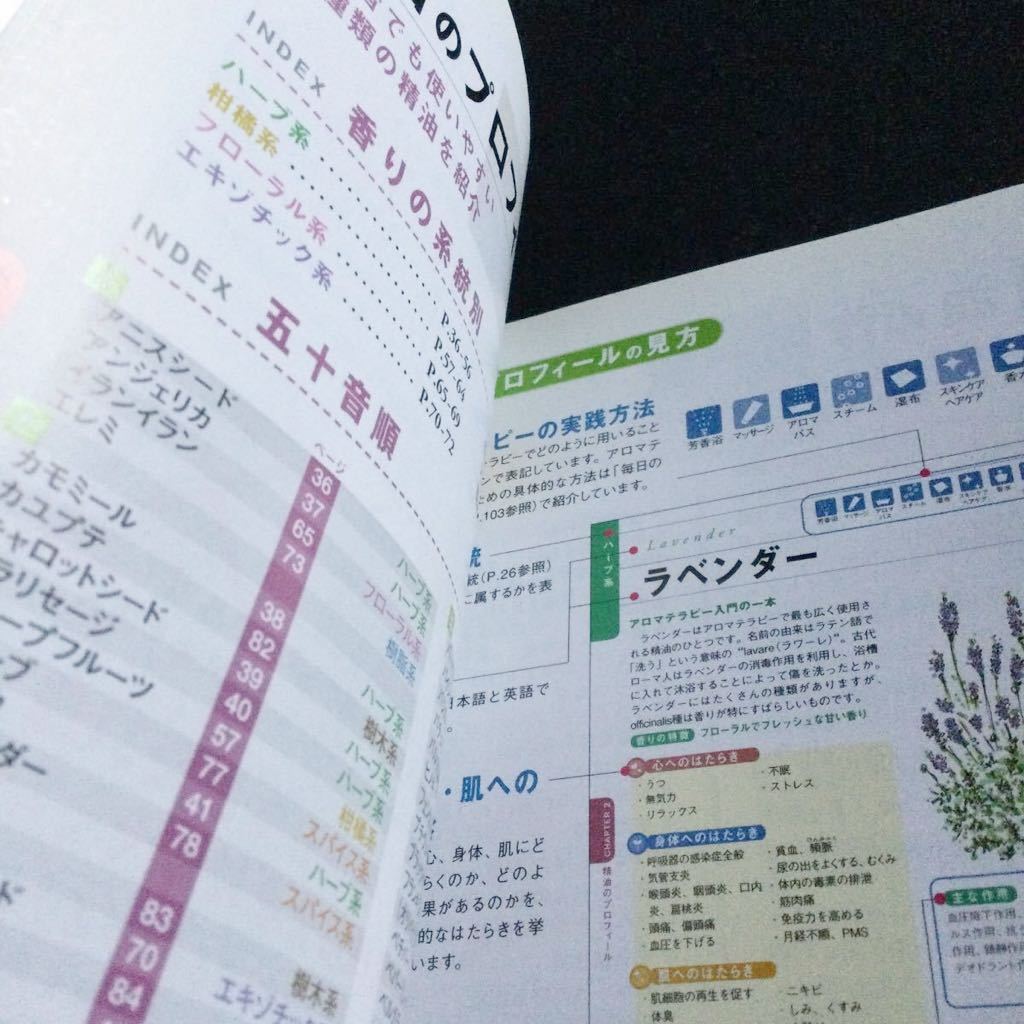 のプロフ
でも使いやすい
種類の精油を紹介
INDEX 香りの系統別
ハーブ系 P.36-56
柑橘系 P.57-64
フローラル系 P.65-69
エキゾチック系 P.70-72
INDEX 五十音順
ページ
アニスシード 36 ハーブ系
アンジェリカ 37 ハーブ系
イランイラン 65 フローラル系
エレミ 73 樹脂系
カモミール 38 ハーブ系
カユプテ 82 樹木系
キャロットシード 39 ハーブ系
ラリセージ 40 ハーブ系
ープフルーツ 57 柑橘系
ーブ 77 スパイス系
41 ハーブ系
ダー 78 スパイス系
83 樹木系
ド 70 エキゾチック系
84
ロフィールの見方
ピーの実践方法
ラピーでどのように用いること
ンで表記しています。アロマテ
ための具体的な方法は「毎日の
P.103参照)で紹介しています。
芳香浴
マッサージ
アロマバス
スチーム
湿布
スキンケア
ヘアケア
香水
芳香浴
マッサージ
アロマバス
スチーム
湿布
スキンケア
ヘアケア
統
統(P.26参照)
に属するかを表
日本語と英語で
。
・肌への
心、身体、肌にど
らくのか、どのよ
果があるのかを、
的なはたらきを挙
います。
ハーブ系
Lavender
ラベンダー
アロマテラピー入門の一本
ラベンダーはアロマテラピーで最も広く使用さ
れる精油のひとつです。名前の由来はラテン語で
「洗う」という意味の"lavare(ラワーレ)"。古代
ローマ人はラベンダーの消毒作用を利用し、浴槽
に入れて沐浴することによって傷を洗ったとか。
ラベンダーにはたくさんの種類がありますが、
officinalis種は香りが特にすばらしいものです。
香りの特徴 フローラルでフレッシュな甘い香り
心へのはたらき
・うつ
・無気力
・リラックス
・不眠
・ストレス
CHAPTER 2
精油のプロフィール
身体へのはたらき
・呼吸器の感染症全般
・気管支炎
・喉頭炎、咽頭炎、口内
炎、扁桃炎
・頭痛、偏頭痛
・血圧を下げる
・貧血、頻脈
・尿の出をよくする、むくみ
・体内の毒素の排泄
・筋肉痛
・免疫力を高める
・月経不順、PMS
肌へのはたらき
・肌細胞の再生を促す
・体臭
・ニキビ
・しみ、くすみ
主な作用
血圧降下作用、
ルス作用、抗
作用、鎮静作
デオドラント作